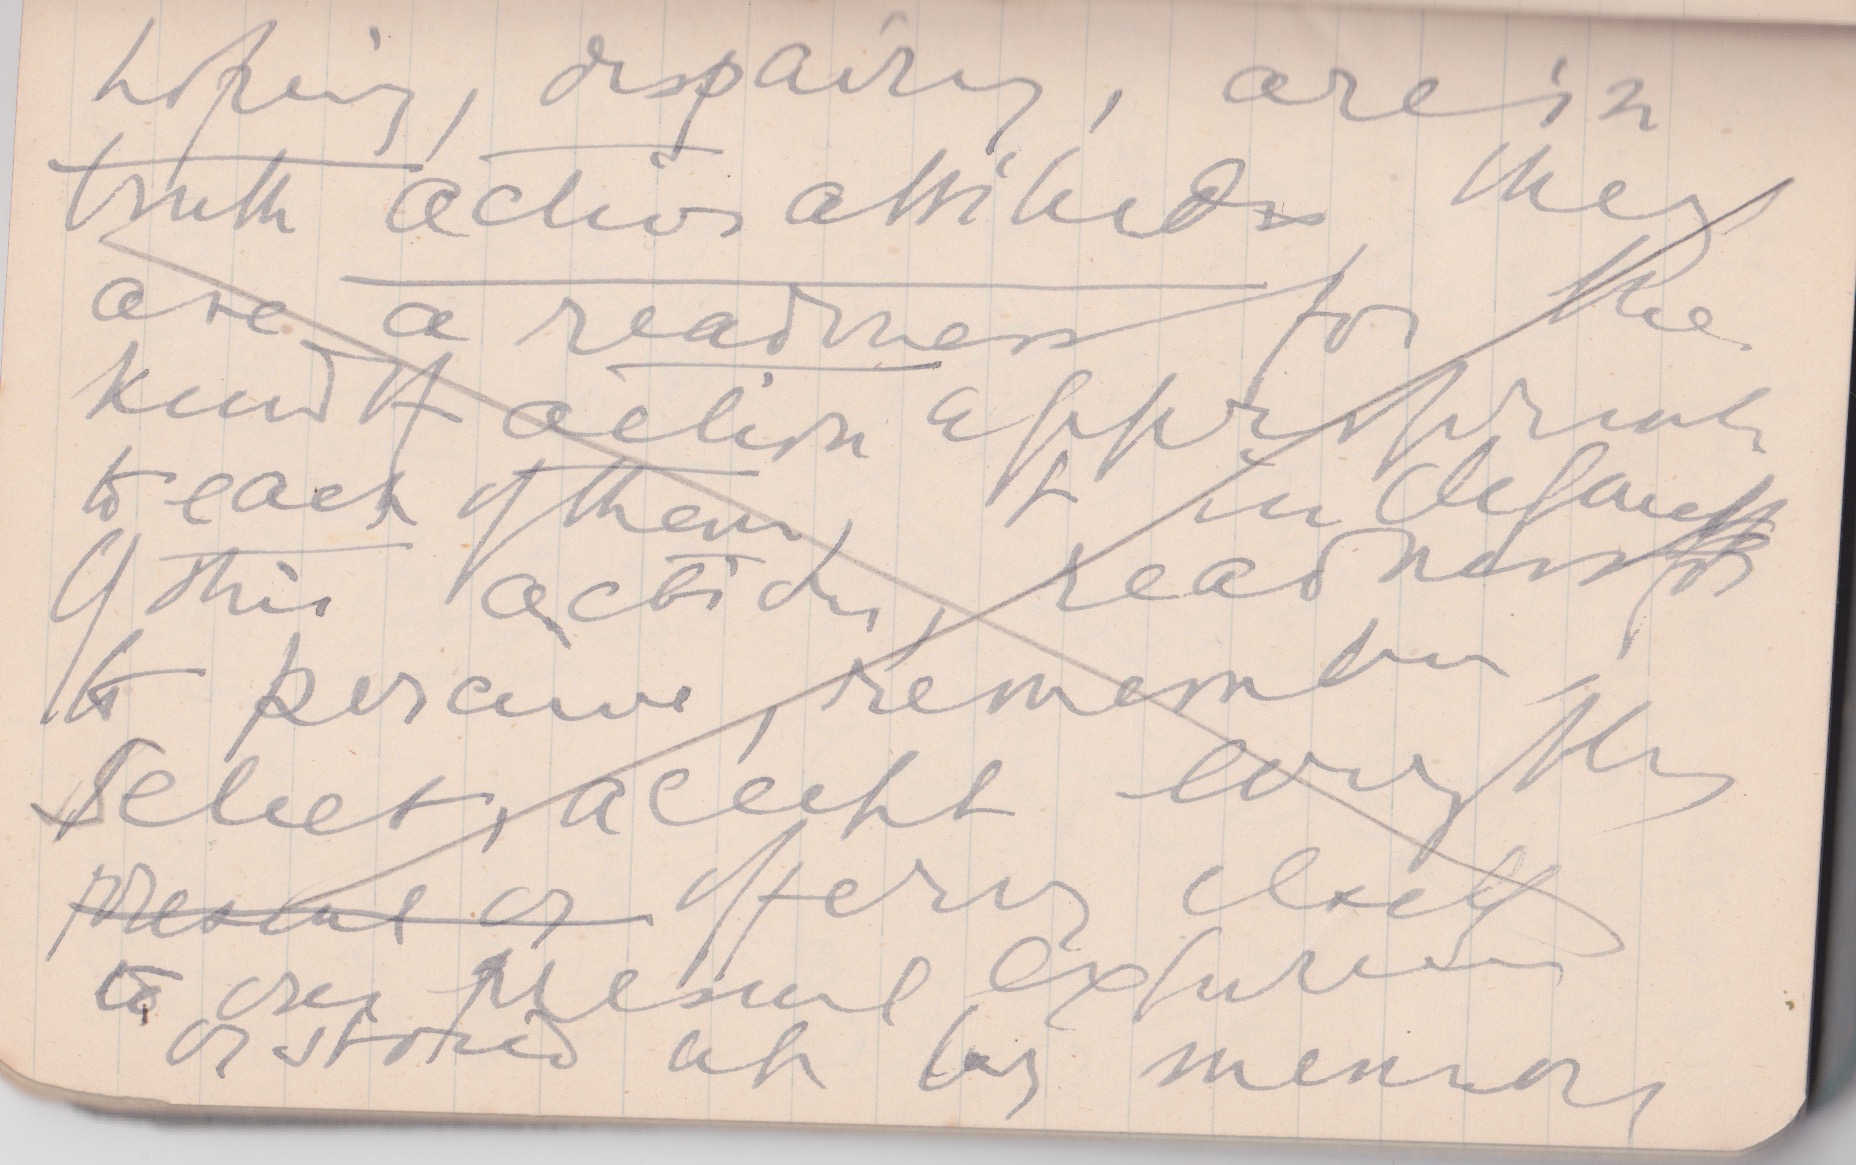 hoping, despairing, are in
truth action attitudes, they
are a readiness for the
kind of action appropriate
to each of them, & in default
of this action, readiness for
to perceive, remember,
select, accept everything
present or offering itself
to our present experience
or stored up by memory